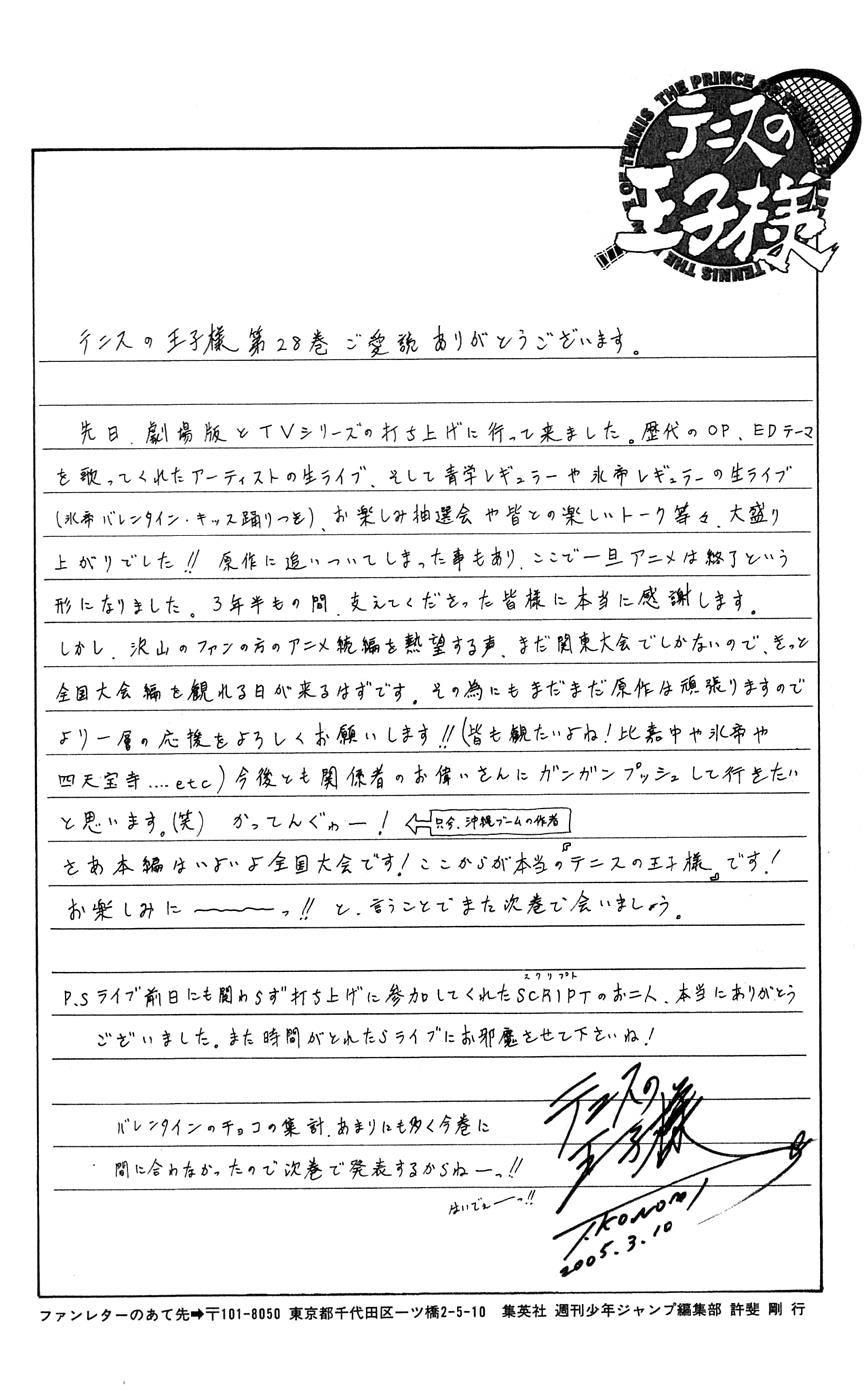 THE PRINCE OF TENNIS
テニスの
王子様
テニスの王子様 第28巻 ご愛読 ありがとうございます。
先日、劇場版とTVシリーズの打ち上げに行って来ました。歴代のOP、EDテーマ
を歌ってくれたアーティストの生ライブ、そして青学レギュラーや氷帝レギュラーの生ライブ
(氷帝バレンタイン・キッス踊りつき)、お楽しみ抽選会や皆との楽しいトーク等々、大盛り
上がりでした!! 原作に追いついてしまった事もあり、ここで一旦アニメは終了という
形になりました。3年半もの間、支えてくださった皆様に本当に感謝します。
しかし、沢山のファンの方のアニメ続編を熱望する声、まだ関東大会でしかないので、きっと
全国大会編を観れる日が来るはずです。その為にもまだまだ原作は頑張りますので
より一層の応援をよろしくお願いします!!(皆も観たいよね!比嘉中や氷帝や
四天宝寺....etc)今後とも関係者のお偉いさんにガンガンプッシュして行きたい
と思います。(笑) かってんぐゎー! ⇦只今、沖縄ブームの作者
さあ本編はいよいよ全国大会です!ここからが本当の『テニスの王子様』です!
お楽しみに〜〜〜っ!! と、言うことでまた次巻で会いましょう。
P.Sライブ前日にも関わらず打ち上げに参加してくれたSCRIPT(スクリプト)のお二人、本当にありがとう
ございました。また時間がとれたらライブにお邪魔させて下さいね!
バレンタインのチョコの集計、あまりにも多く今巻に
間に合わなかったので次巻で発表するからねーっ!!
はいでぇーっ!!
テニスの
王子様
T.KONOMI
2005.3.10
ファンレターのあて先➡〒101-8050 東京都千代田区一ツ橋2-5-10 集英社 週刊少年ジャンプ編集部 許斐 剛 行